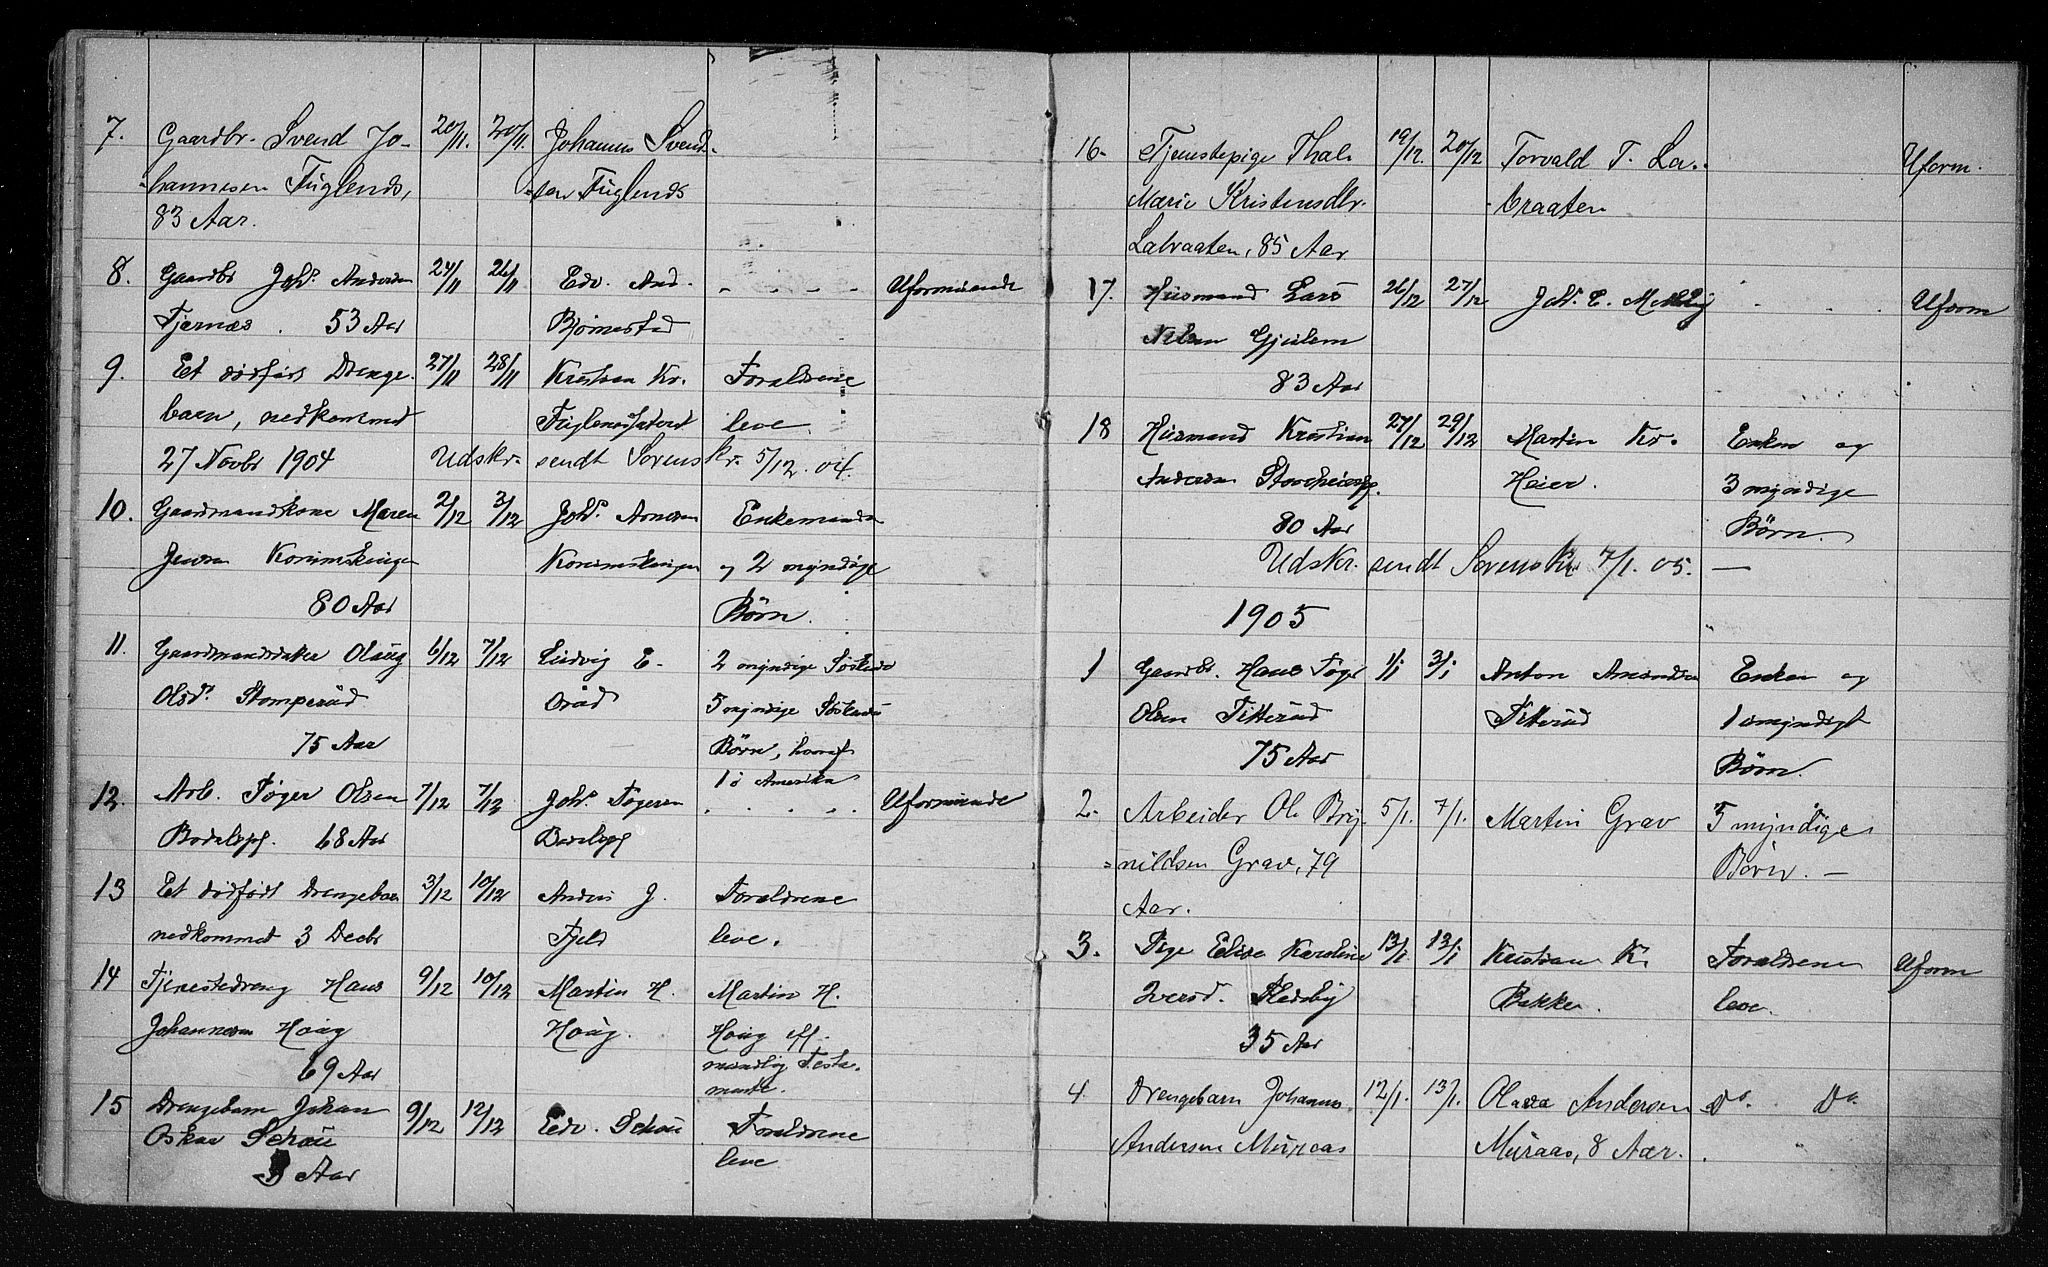 7. Gaardbr. Svend Jo- 20/11. 20/11. Johannes Svend-
hannesen Fuglenes, sen Fuglenes
83 Aar.
8. Gaardbr Johs. Andersen 24/11 26/11 Edv. And. - - - - Uformuende
Tjernæs. 53 Aar Bjørnestad
9. Et dødfødt Drenge- 27/11 28/11 Kristian Kr. Forældrene
barn, nedkommet leve.
27 Novbr 1904 Udskr. sendt Sorenskr. 5/12. 04.
10. Gaardmandskone Maren 2/12 3/12 Johs. Enkemanden
Jensen Korsimskingen Korsimskingen og 2 myndige
80 Aar Børn.
11. Gaardmandsdatter Olaug 6/12 7/12 Ludvig E. 2 myndige Søskende
Olsd. Stomperud Oraad 5 myndige Søskende
75 Aar Børn, hvoraf
1 i Amerika
12. Arb. Tøger Olsen 7/12 7/12 Johs. Tøgersen . . . . Uformuende
Bødalspl. 68 Aar Bødalspl
13 Et dødfødt Drengebarn 3/12 10/12 Anders J. Forældrene
nedkommet 3 Decbr Fjeld leve.
14 Tjenestedreng Hans 9/12 10/12 Martin H. Martin H.
Johannesen Haug Haug. Haug eft.
69 Aar mundtlig Testa-
mente.
15 Drengebarn Johan 9/12 12/12 Edv. Schau Forældrene
Oskar Schau leve
Aar
16. Tjenestepige Thal. 19/12. 20/12 Torvald T. La- Uform.
Marie Kristensdtr. braaten
Labraaten, 85 Aar
17. Husmand Lars 26/12 27/12 Joh. E. . . . Uform
Nilsen Gjulem
83 Aar
18 Husmand Kristian 27/12 29/12 Martin Kr. Enken og
Andersen Heier. 3 myndige
80 Aar Børn.
Udskr. sendt Sorenskr 7/1. 05. —
1905
1 Gaardbr. Hans Tøger 1/1 3/1 Anton Amundsen Enken og
Olsen Titterud Titterud 1 umyndigt
75 Aar Børn.
2. Arbeider Ol. Bry- 5/1. 7/1. Martin Grav 5 myndige
nildsen Grav, 79 Børn. —
Aar.
3. Pige Elise Karoline 13/1 13/1 Kristian K. Forældrene Uform
Iversd. Bakken. leve.
35 Aar
4. Drengebarn Johannes 12/1. 13/1. Olava Andersen Do. Do.
Andersen Muraas Muraas, 8 Aar.